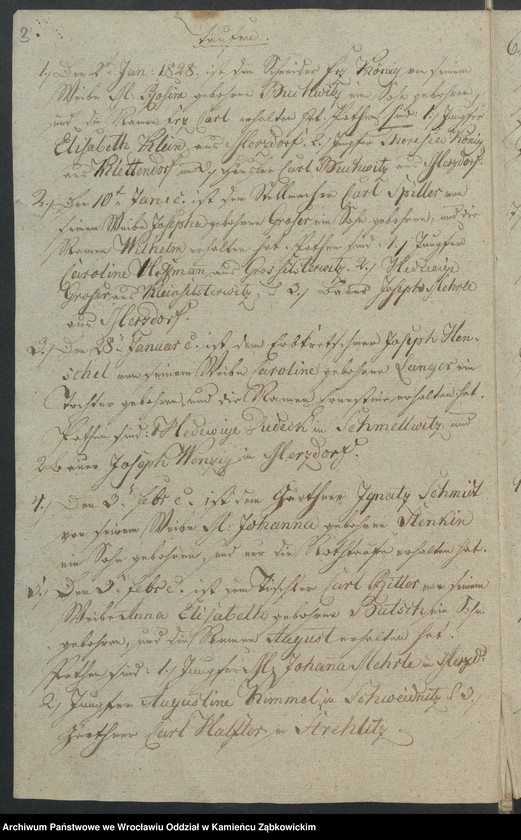 3.
Taufen.
1.) Den 2t Jan: 1828. ist dem Schneider Frz König von seinem
Weibe M: Rosine gebohrne Buchwitz ein Sohn gebohren,
und die Namen Frz Carl erhalten hat. Pathen sind: 1.) Jungfer
Elisabeth Klein, aus Merzdorf. 2.) Jungfer Theresie König
aus Klettendorf, und Carl Buchwitz aus Merzdorf.
2.) Den 10te Jan: c. ist dem Stellmacher Carl Spiller von
seinem Weibe Josepha gebohrne Groser ein Sohn gebohren, und die
Namen Wilhelm erhalten hat. Pathen sind: 1.) Jungfer
Caroline aus Grossitsterwitz. 2.) Hedewige
Groser aus Kleinsitsterwitz, 3.) Bauer Joseph Mehrle
aus Merzdorf.
3.) Den 28t Januar c. ist dem Erbkretschmer Joseph Hen-
schel von seinem Weibe Caroline gebohrne Langer ein
Tochter gebohren, und die Namen Ernestine erhalten hat.
Pathen sind: Hedewige Dudeck in Schmellwitz, und
2. Bauer Joseph Wenzig in Merzdorf.
4.) Den 3t Febr c. ist dem Gärthner Ignatz Schmidt
von seinem Weibe M: Johanna gebohrne Stenkin
ein Sohn gebohren, und nur die Nothtaufe erhalten hat.
5.) Den 3t Febr c. ist dem Tischler Carl Ritter von seinem
Weibe Anna Elisabeth gebohrne Butsch ein Sohn
gebohren, und die Namen August erhalten hat.
Pathen sind: 1.) Jungfer M: Johana Mehrle in Merzd:
2.) Jungfer Augustine Kimmel, in Schweidnitz & 3.
Gärthner Carl Halfter in Strehlitz.
Archiwum Państwowe we Wrocławiu Oddział w Kamieńcu Ząbkowickim